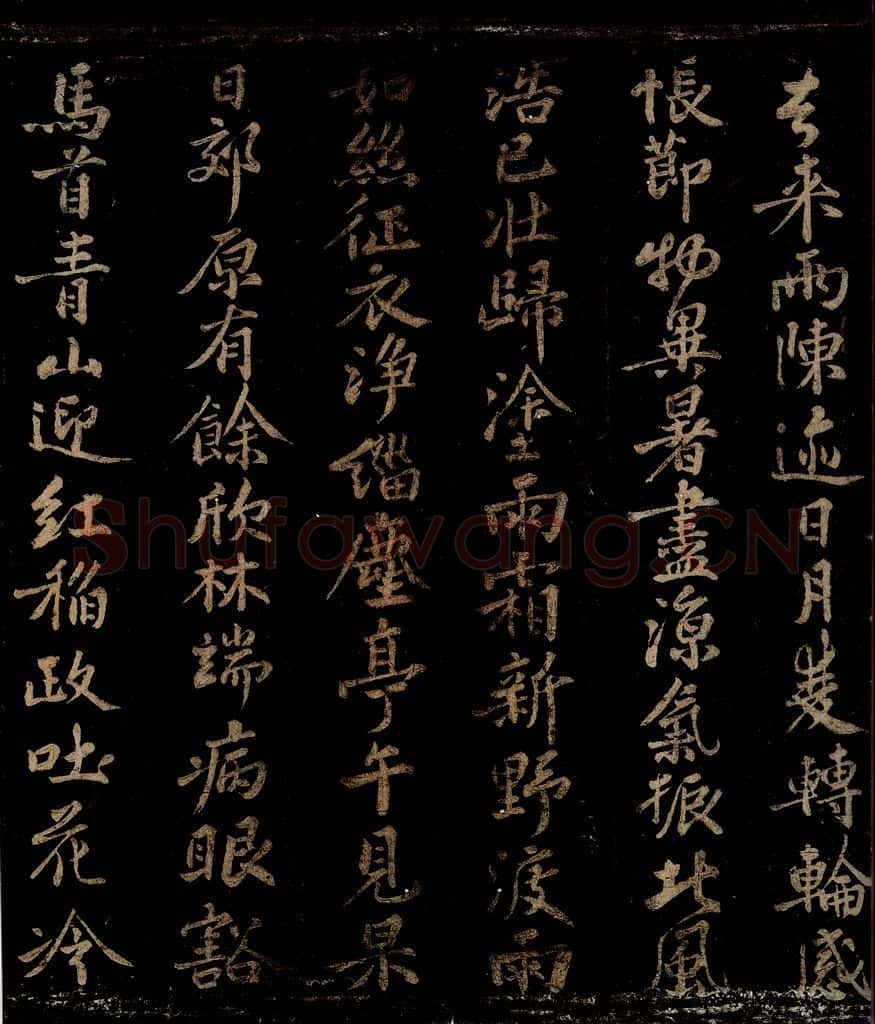 去来兩陳迹日月轉輪感
悵節物異暑盡涼氣振北風
浩已壯歸塗雨霜新野渡雨
如絲征衣淨緇塵亭午見杲
日郊原有餘欣林端病眼豁
馬首青山迎紅稻政吐花冷
Shufawang.CN